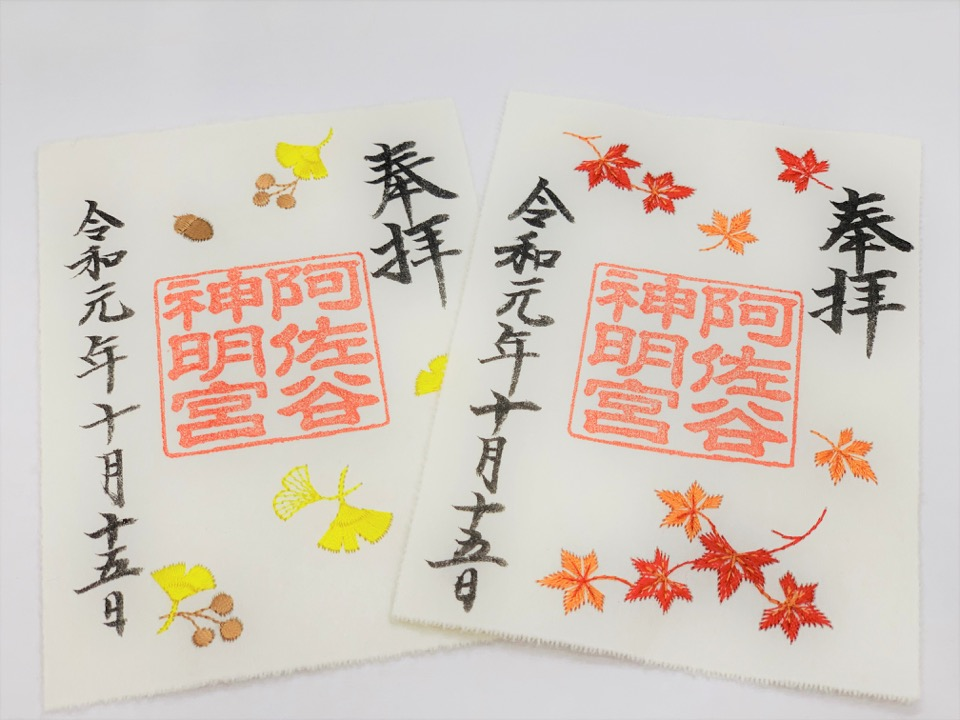 奉拝
阿佐谷
神明宮
令和元年十月十五日
奉拝
阿佐谷
神明宮
令和元年十月十五日